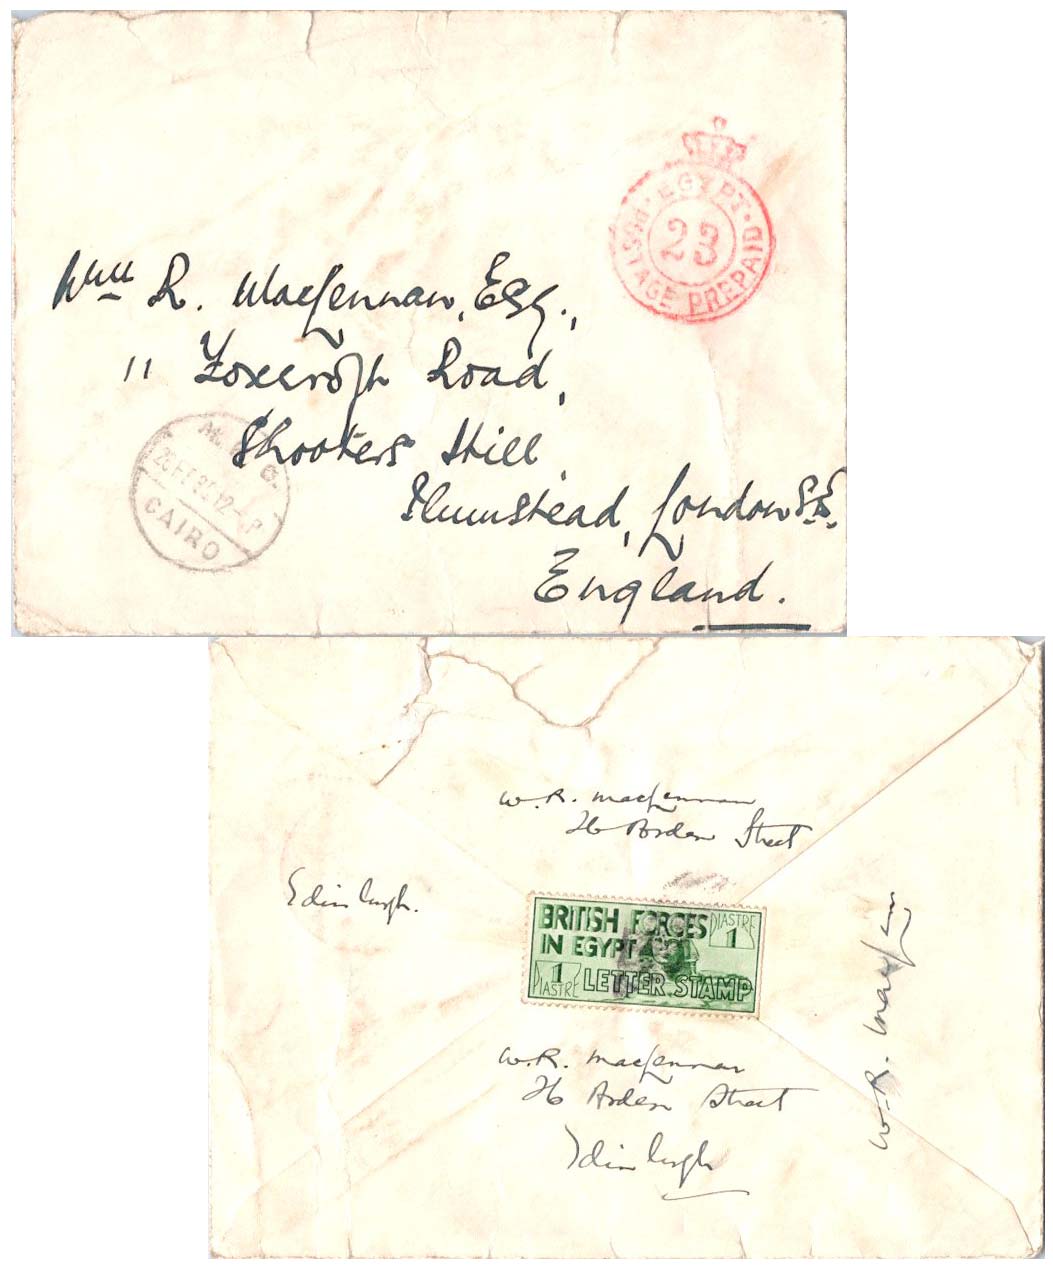 EGYPT
POSTAGE PREPAID
23
Wm R. MacLennan, Esq.,
11 Foxcroft Road,
Shooters Hill,
Plumstead, London S.E.
England.
CAIRO
W. R. MacLennan
26 Arden Street
Edinburgh.
BRITISH FORCES
IN EGYPT
PIASTRE
1
1
PIASTRE
LETTER STAMP
W. R. MacLennan
26 Arden Street
Edinburgh
W. R. MacLennan